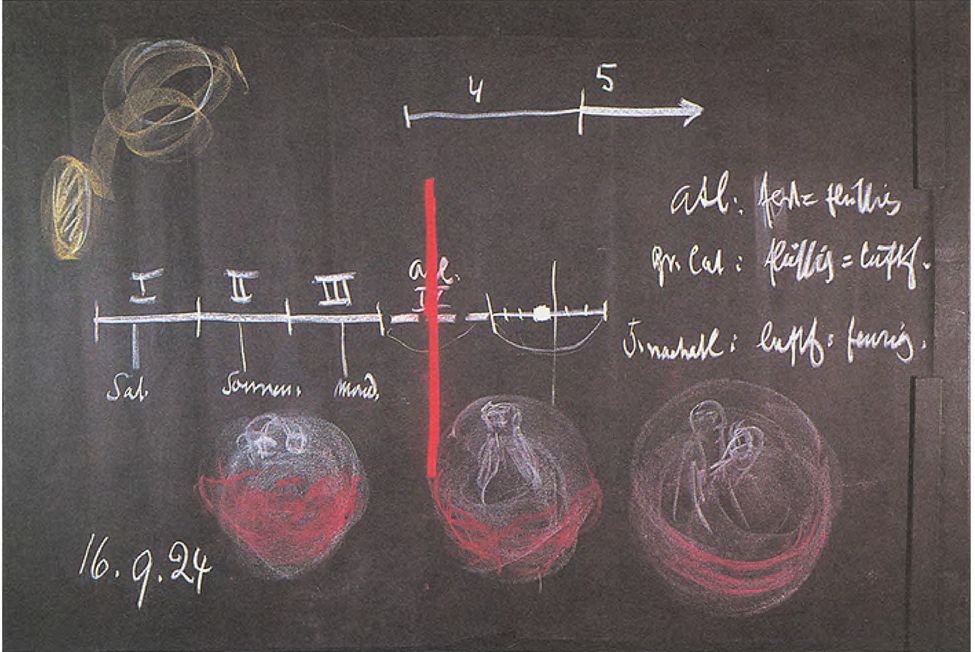 4 5
atl: fest= flüssig
gr. lat: flüssig = luftf.
I II III atl.
IV
5. nachatl: luftf = feurig.
Sat. Sonnen. Mond.
16.9.24